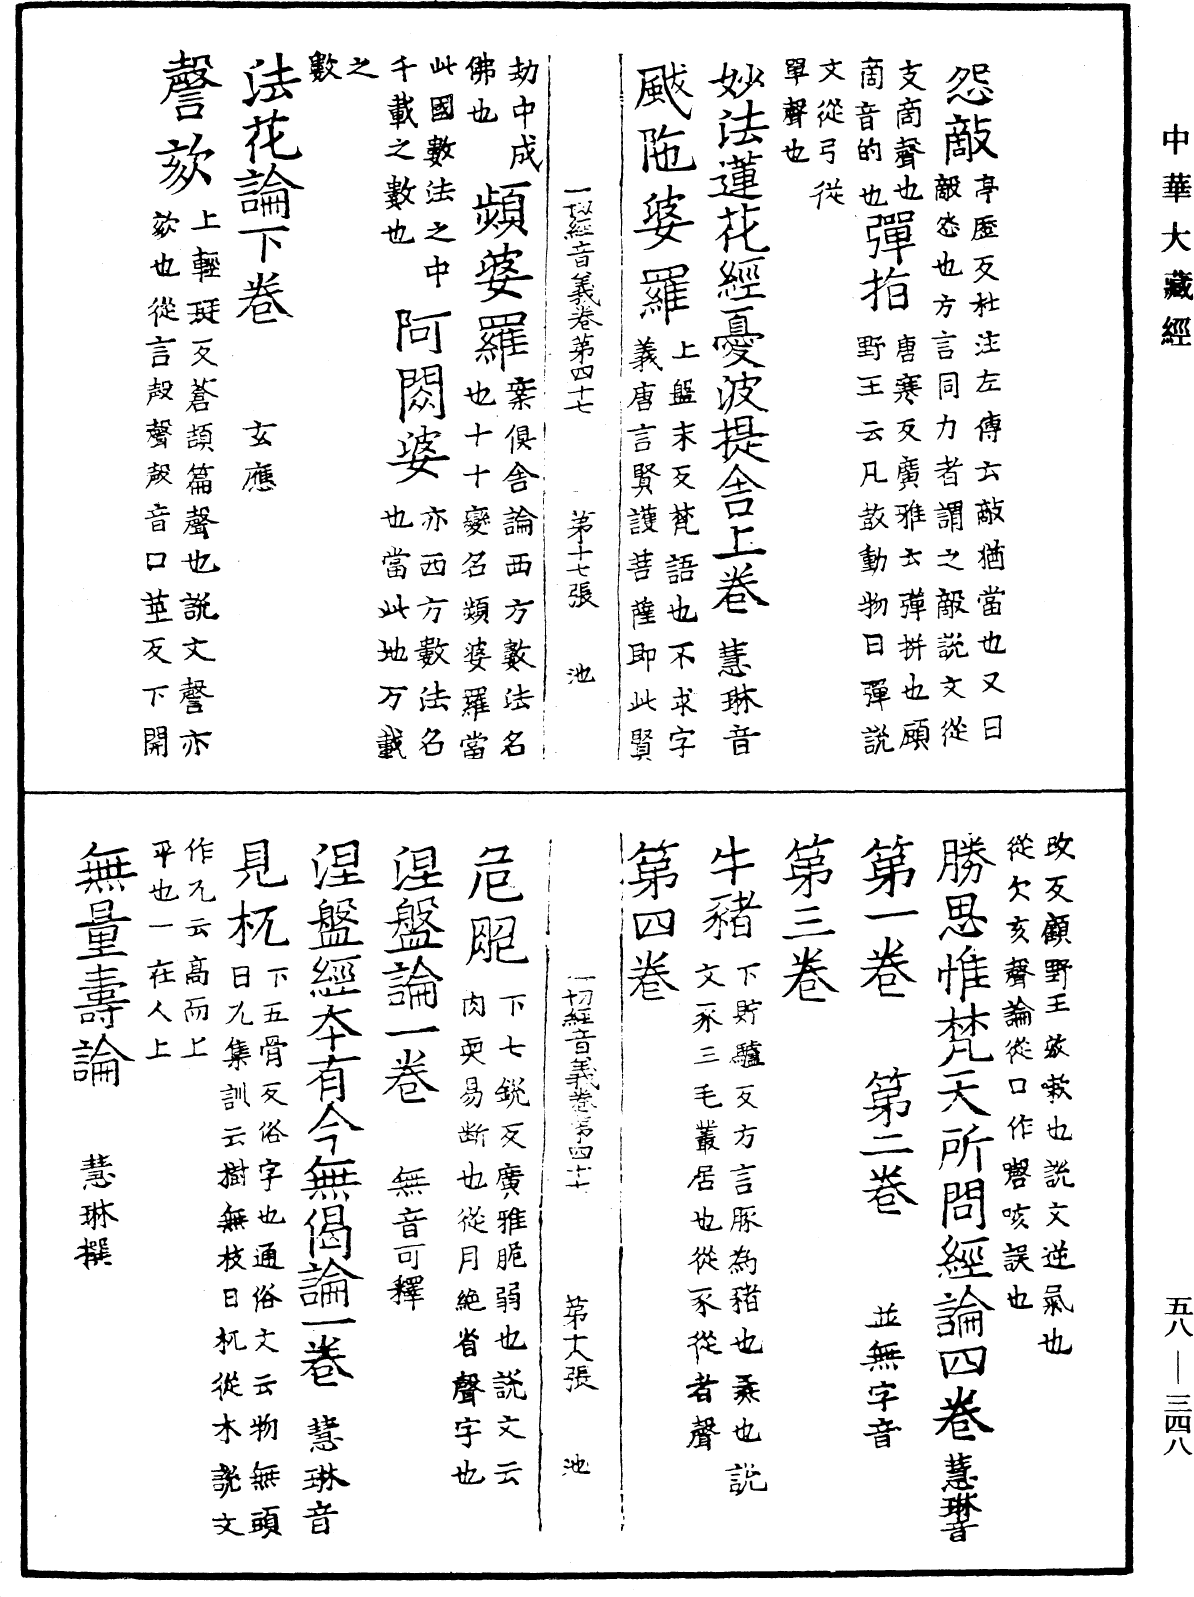 中華大藏經
怨敵亭歷反杜注左傳云敵猶當也又曰敵怨也方言同力者謂之敵說文從支啇聲也啇音的也彈拍唐寒反廣雅云彈拼也顧野王云凡鼓動物曰彈說文從弓從單聲也
妙法蓮花經憂波提舍上卷 慧琳音
颰陁婆羅上盤末反梵語也不求字義唐言賢護菩薩即此賢
一切經音義卷第四十七 第十七張 池
劫中成佛也頻婆羅案俱舍論西方數法名也十十變名頻婆羅當此國數法之中千載之數也阿閦婆亦西方數法名也當此地万載之數
法花論下卷 玄應
謦欬上輕挺反蒼頡篇聲也說文謦亦欬也從言殸聲殸音口莖反下開
改反顧野王欬嗽也說文逆氣也從欠亥聲論從口作謦咳誤也
勝思惟梵天所問經論四卷 慧琳音
第一卷 第二卷 並無字音
第三卷
牛豬下貯驢反方言豚為豬也彘也說文豕三毛叢居也從豕從者聲
第四卷
一切經音義卷第四十七 第十八張 池
危脆下七銳反廣雅脆弱也說文云肉耎易斷也從月絕省聲字也
涅盤論一卷 無音可釋
涅盤經本有今無偈論一卷 慧琳音
見杌下五骨反俗字也通俗文云物無頭曰兀集訓云樹無枝曰杌從木說文作兀云高而上平也一在人上
無量壽論 慧琳撰
五八—三四八